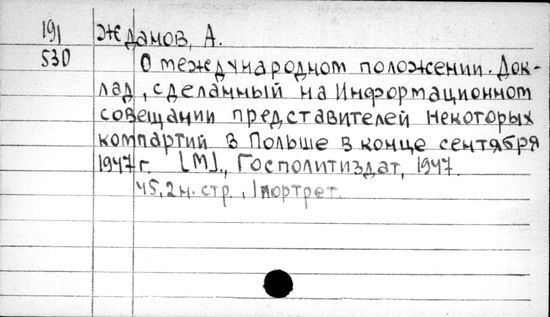 191 Жданов, А.
530 О международном положении. Док-
лад, сделанный на Информационном
совещании представителей некоторых
компартий в Польше в конце сентября
1947 г. [М]., Госполитиздат, 1947.
45,2 н. стр., 1 портрет.